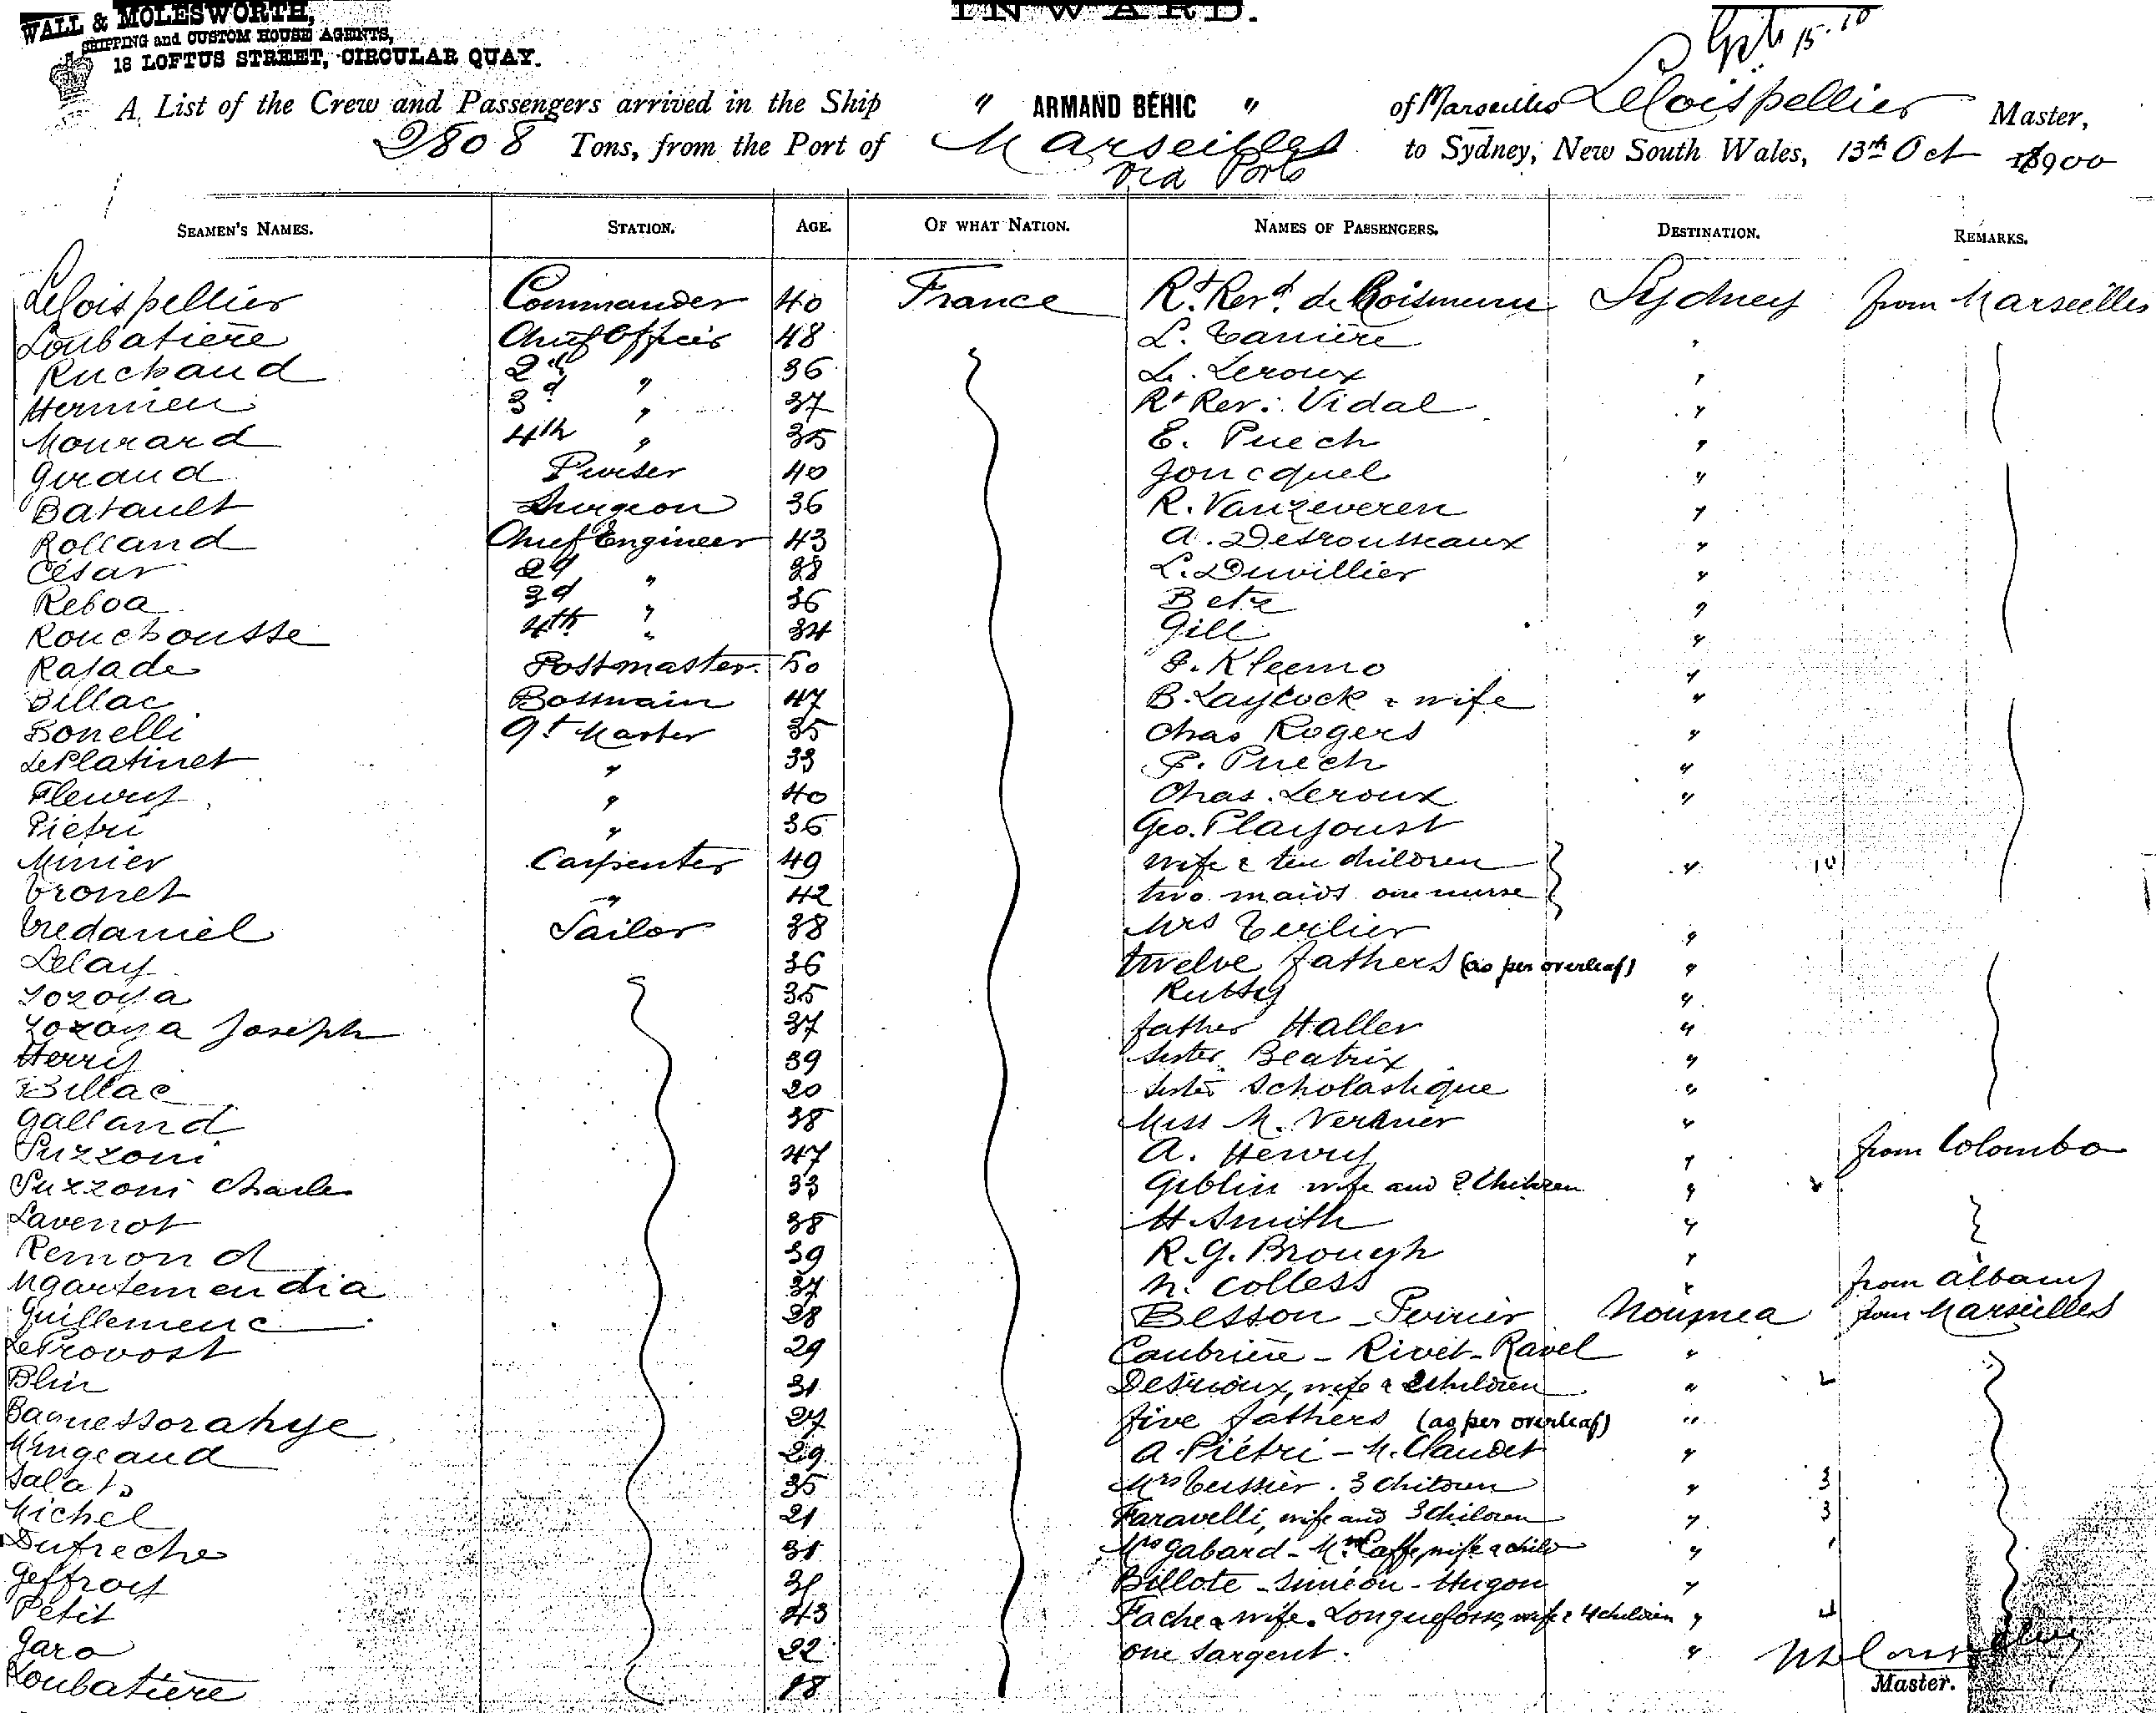 WALL & MOLESWORTH,
SHIPPING and CUSTOM HOUSE AGENTS,
18 LOFTUS STREET, CIRCULAR QUAY.
INWARD.
15.10
A List of the Crew and Passengers arrived in the Ship " ARMAND BÉHIC " of Marseilles Leloispellier Master,
2808 Tons, from the Port of Marseilles to Sydney, New South Wales, 13th Oct 1900
via Ports
SEAMEN'S NAMES. STATION. AGE. OF WHAT NATION. NAMES OF PASSENGERS. DESTINATION. REMARKS.
Leloispellier Commander 40 France Rt. Revd. de Boismenu Sydney from Marseilles
Loubatière Chief Officer 48 L. Tanière "
Ruchaud 2d " 36 L. Leroux "
Hermieu 3d " 37 Rt Rev. Vidal "
Mourard 4th " 35 E. Puech "
Geraud Purser 40 Joncquel "
Batault Surgeon 36 R. Vanzeveren "
Rolland Chief Engineer 43 A. Desrousseaux "
César 2d " 38 L. Duvillier "
Reboa 3d " 36 Betz "
Rouchousse 4th " 34 Gill "
Rasade Postmaster 50 J. Kleemo "
Billac Bosswain 47 B. Laycock & wife "
Bonelli Qt Master 35 Chas Rogers "
LePlatinet " 33 P. Puech "
Fleury " 40 Chas. Leroux "
Piétri " 36 Geo. Playoust
Minier Carpenter 49 wife & ten children " 10
Tronet " 42 two maids one nurse
Tredaniel Sailor 38 Mrs Terlier "
Lelay 36 twelve fathers (as per overleaf) "
Yozoya 35 Rutty "
Yozoya Joseph 37 father Haller "
Herry 39 sister Beatrix "
Billac 20 sister Scholastique "
Galland 38 Miss M. Verdnier "
Puzzoni 47 A. Henry " from Colombo
Puzzoni Charles 33 Giblin wife and 2 Children "
Lavenot 38 H. Smith "
Remond 39 R. G. Brough "
Ugartemendia 37 N. Colless " from Albany
Guillemenc 28 Besson - Perrier Noumea from Marseilles
LeProvost 29 Caubrière - Rivet - Ravel "
Blin 31 Desrioux, wife & 2 children " 2
27 five fathers (as per overleaf) "
Mingeaud 29 A. Piétri - M. Claudet "
Salats 35 Mrs Teissier. 3 Children " 3
Michel 21 Faravelli, wife and 3 Children " 3
Dufreche 31 Mrs Gabard - Mr. Caffe, wife & child " 1
Geffroy 31 Billote - Siméon - Hugon "
Petit 43 Fache & wife. Longuefosse, wife & 4 children " 4
Garo 22 one Sargent. "
Loubatière 18
Master.